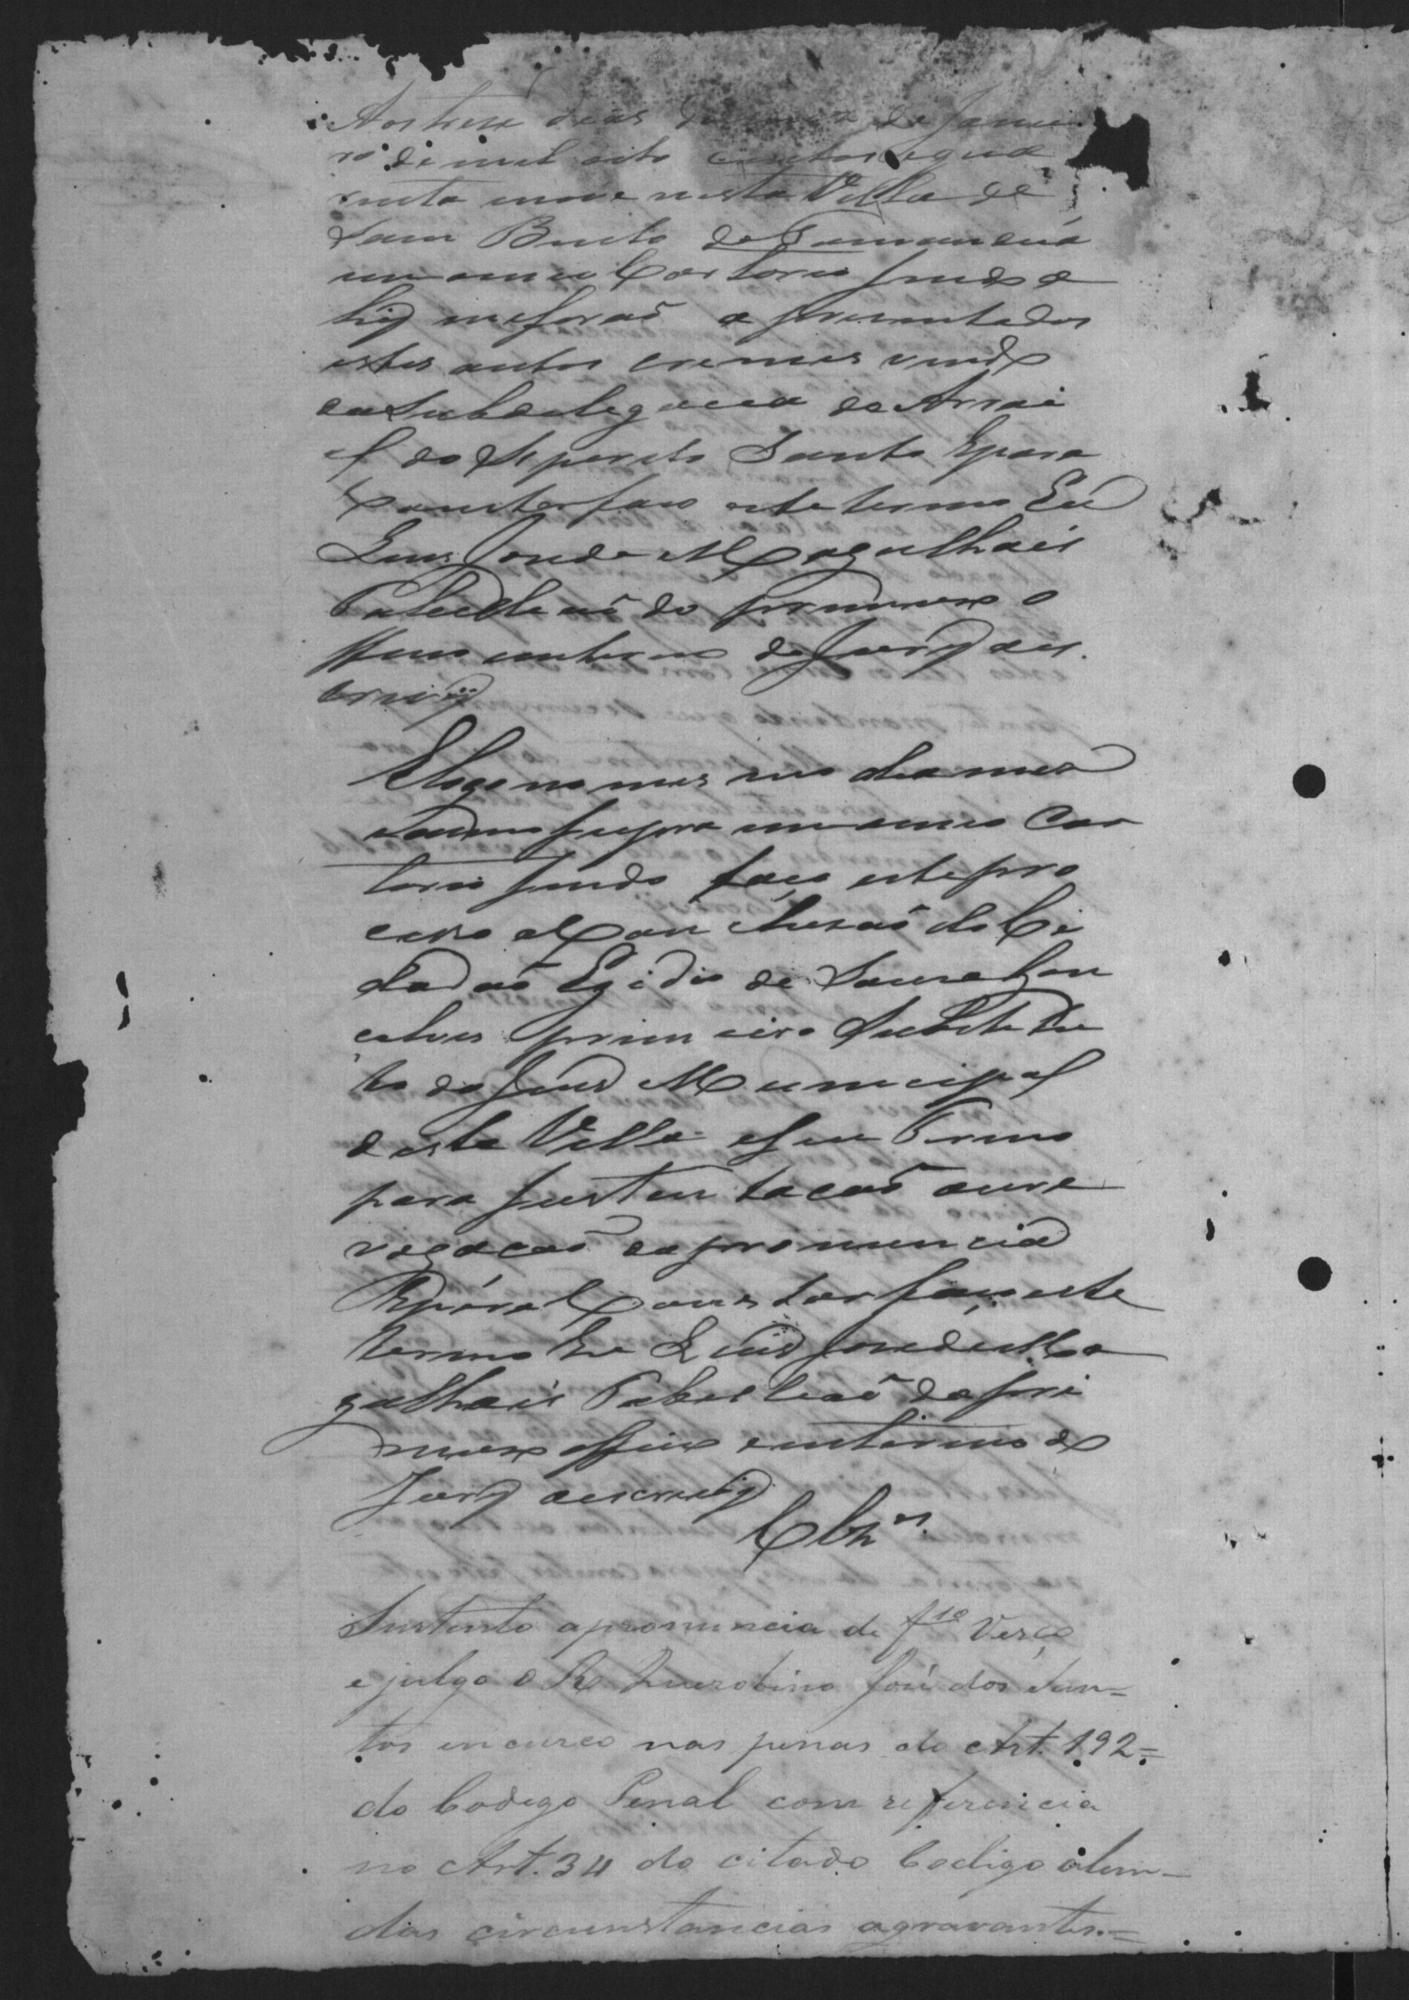 Aos treze dias do mes de Janei
ro de mil oito centos e qua
renta nove nesta Villa de
Sam Bento do Tamanduá
em o meu Cartorio sendo a
hi me foraõ aprezentados
estes autos crimes vindos
da Subdelegacia do Arrai
al do Esperito Santo Epara
Constar faso este termo Eu
Luis Joze de Magalhais
Tabelleaõ do primeiro o
fficio enterino do Jury a es
crevy
Elogo no mesmo dia mes e
anno supra em o meu Car
torio sendo faço este pro
cesso a Concluzaõ do Ci
dadaõ Egidio de Souza Gon
calves primeiro Substitu
to do Juis Municipal
desta Villa e seu Termo
para sustentacaõ ou re
vogacaõ da pronuncia
Epára Constar faço este
termo Eu Luis Joze de Ma
galhais Tabelleaõ do pri
meiro officio e enterino do
Jury a escrevy
Clzos
Sustento a pronuncia de f 10 Verço
e julgo o R. Querobino José dos San=
tos encurco nas penas do Art. 192=
do Codego Penal com referencia
no Art. 34 do citado Codigo alem
das circunstancias agravantes.=